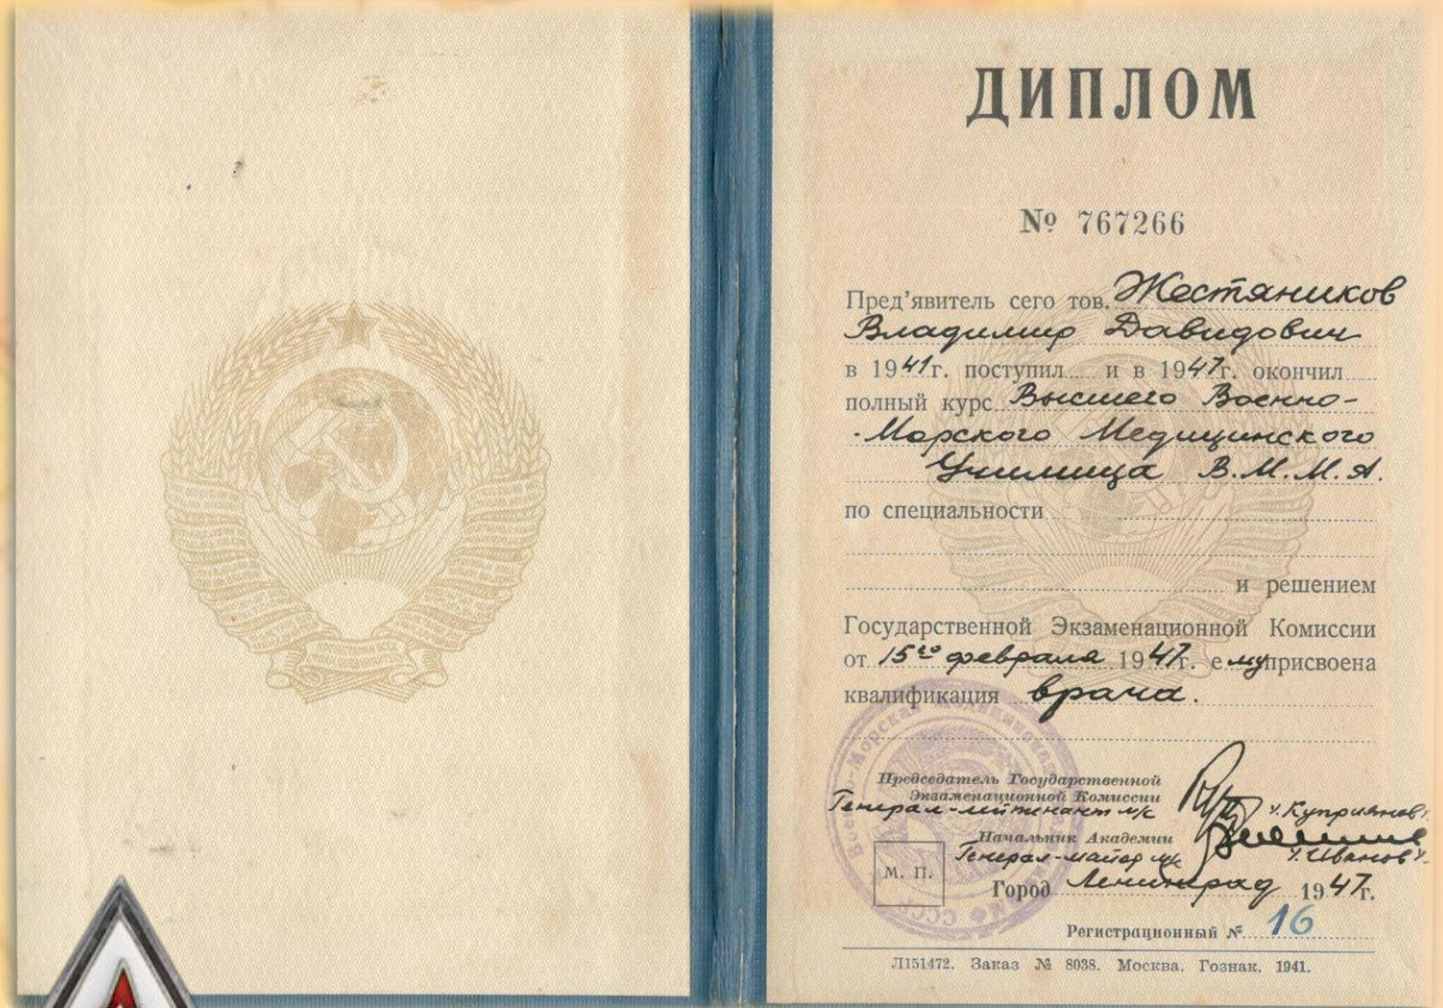 ДИПЛОМ
№ 767266
Пред'явитель сего тов. Жестяников
Владимир Давидович
в 1941 г. поступил и в 1947 г. окончил
полный курс Высшего Военно-
-Морского Медицинского
Училища В.М.М.А.
по специальности
и решением
Государственной Экзаменационной Комиссии
от 15го февраля 1947 г. ему присвоена
квалификация врача.
Председатель Государственной
Экзаменационной Комиссии
Генерал-лейтенант м/с /Куприянов/
Начальник Академии
Генерал-майор м/с /Иванов/
М. П.
Город Ленинград 1947 г.
Регистрационный № 16
Л151472. Заказ № 8038. Москва. Гознак. 1941.